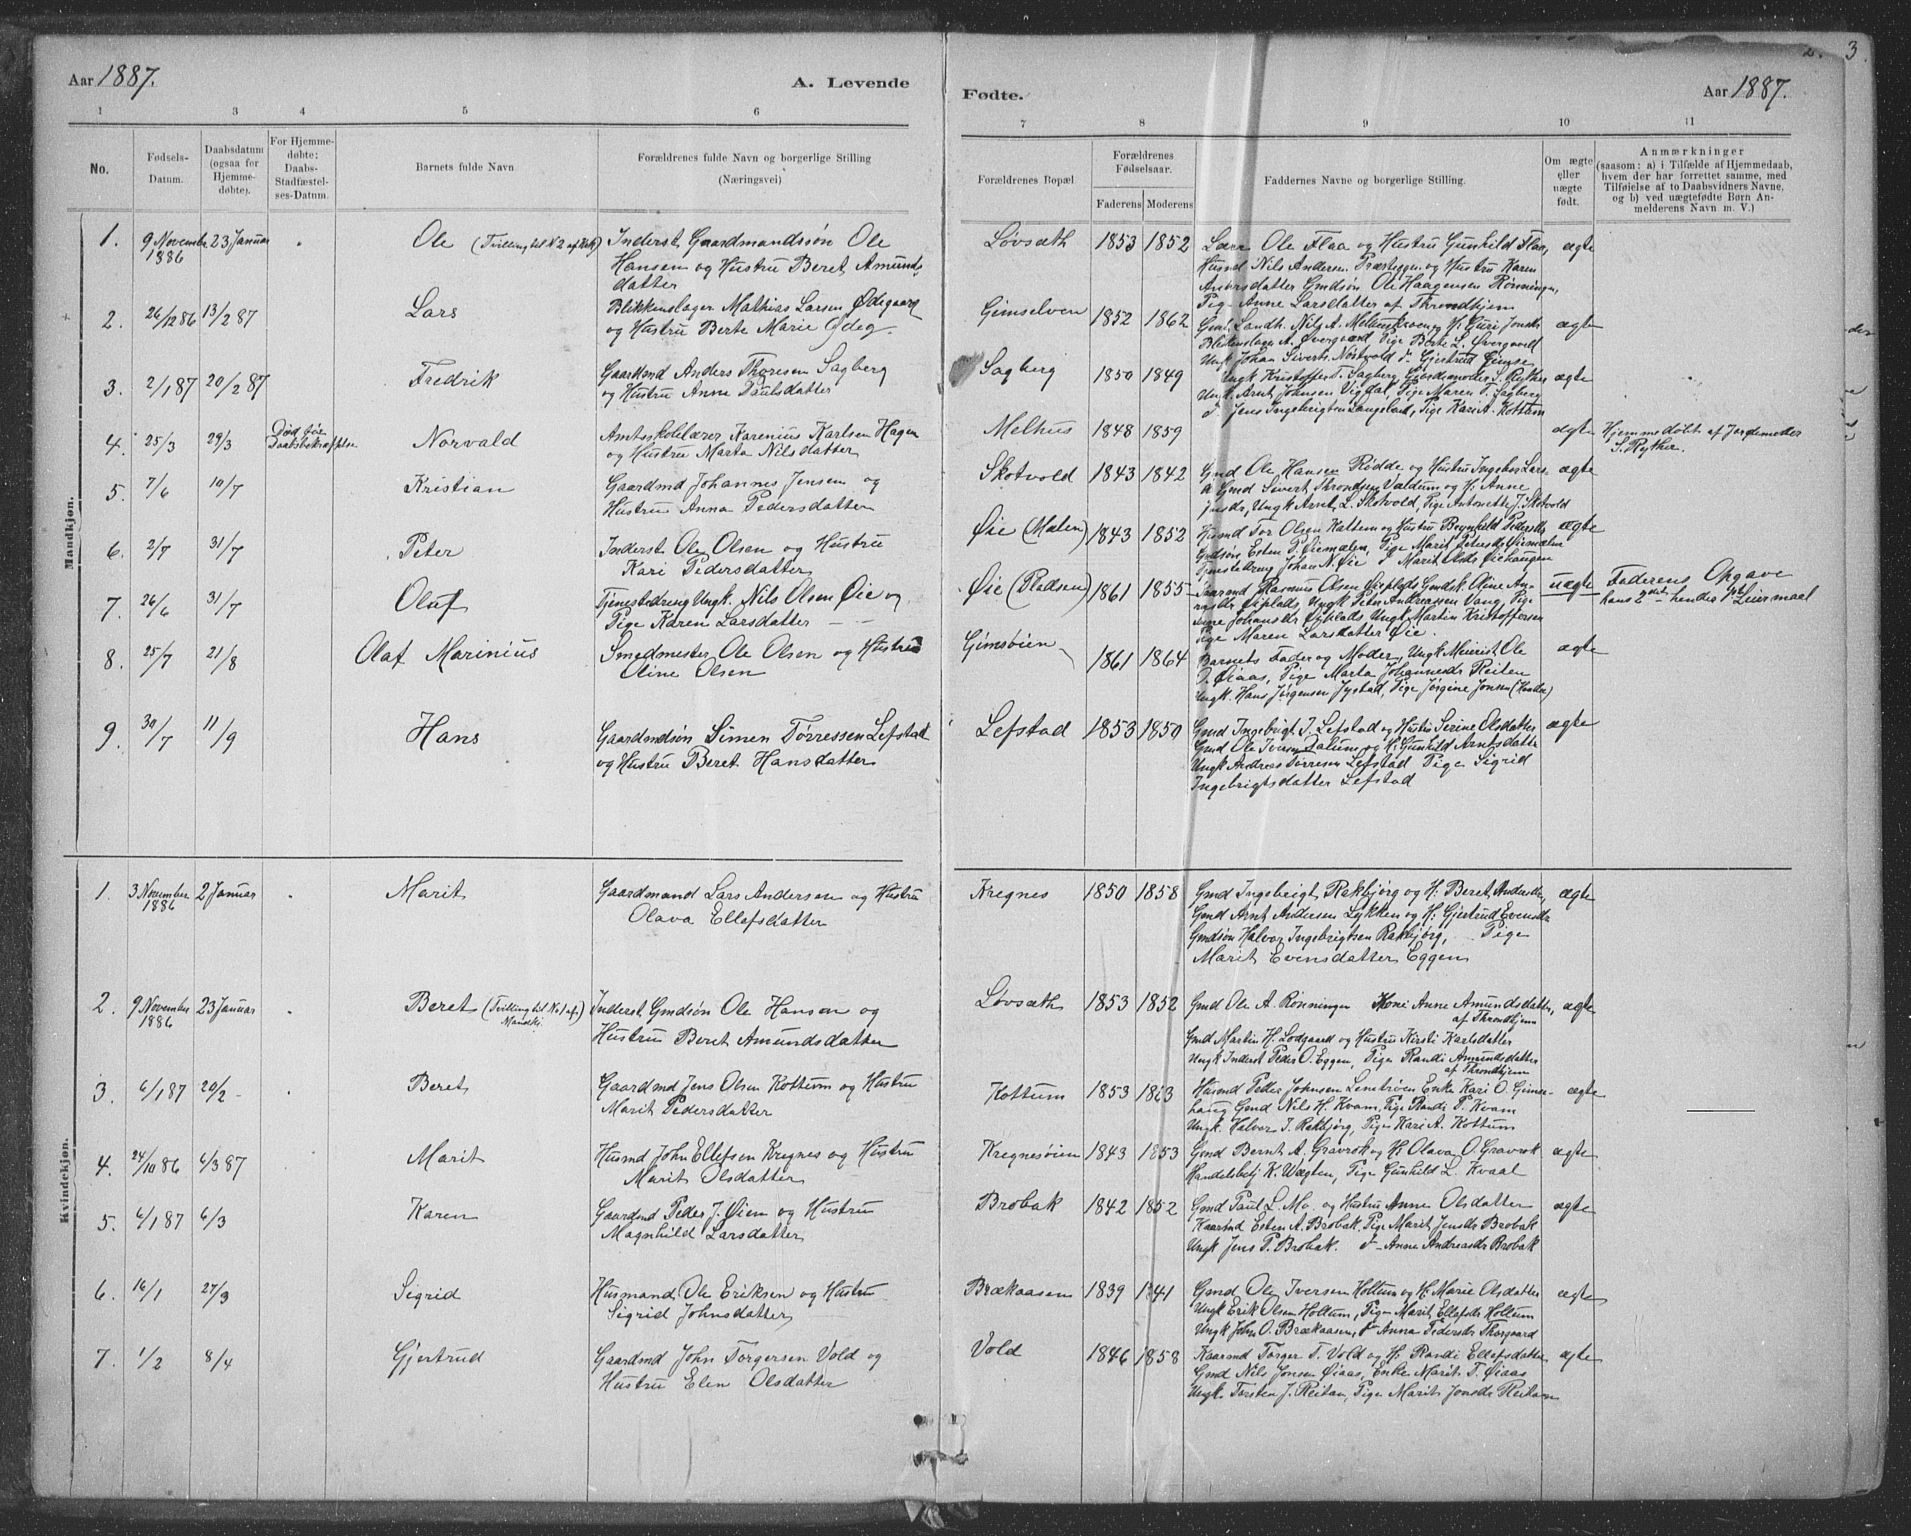 2. 3.
Aar 1887. A. Levende Fødte. Aar 1887.
1 3 4 5 6 7 8 9 10 11
No.
Fødsels-Datum.
Daabsdatum (ogsaa for Hjemmedøbte).
For Hjemmedøbte: Daabs-Stadfæstelses-Datum.
Barnets fulde Navn
Forældrenes fulde Navn og borgerlige Stilling
(Næringsvei)
Forældrenes Bopæl
Forældrenes Fødselsaar.
Faderens Moderens
Faddernes Navne og borgerlige Stilling.
Om ægte eller uægte født.
Anmærkninger
(saasom: a) i Tilfælde af Hjemmedaab,
hvem der har forrettet samme, med
Tilføielse af to Daabsvidners Navne,
og b) ved uægtefødte Børn Anmelderens Navn m. V.)
Mandkjøn.
1. 9 November 1886 23 Januar Ole (Tvilling til N 2 af Kvk) Inderst Gaardmandssøn Ole
Hansen og Hustru Beret Amunds
datter
Løvsæth 1853 1852 Lærer Ole Flaa og Hustru Gunhild Flaa, ægte
Husmd Nils Andersen Præsteggen og Hustru Karen
Andersdatter Gmdsøn Ole Haagensen Rønningen,
Pige Anne Larsdatter af Throndhjem
2. 26/12 86 13/2 87 Lars Blikkenslager Mathias Larsen Ødegaard
og Hustru Berte Marie Ødeg.
Gimselven 1852 1862 ægte
Blikkenslager A. Øvergaard Pige Berte L. Øvergaard
Ungk Johan Siverts. Nøstvold F. Gjertrud Gimse
3. 2/1 87 20/2 87 Fredrik Gaardmd Anders Thoresen Sagberg
og Hustru Anne Paulsdatter
Sagberg 1850 1849 Ungk Kristoffer T. Sagberg, Jordemoder S. Ryther ægte
Ungk. Arnt Johnsen Vigdal, Pige Maren T. Sagberg
F. Jens Ingebrigtsen Langeland, Pige Kari A. Kottum
4. 25/3 29/3 Død før Daabsbekræftelse Norvald Amtsskolelærer Karenius Karlsen Hagen
og Hustru Marta Nilsdatter
Melhus 1848 1859 ægte Hjemmedøbt af Jordemoder
S. Ryther.
5. 7/6 10/7 Kristian Gaardmd Johannes Jensen og
Hustru Anna Pedersdatter
Skotvold 1843 1842 Gmd Ole Hansen Rødde og Hustru Ingeber Lars- ægte
dr Gmd Sivert Throndsen Valdum og H. Anne
Jensdr, Ungk Arnt L. Skotvold, Pige Antonette J. Skotvold
6. 2/7 31/7 Peter Inderst Ole Olsen og Hustru
Kari Pedersdatter
Øie (Mælen) 1843 1852 Husmd Tor Olsen Heltem og Hustru Brynhild Pedersdr ægte
Gmdsøn Esten P. Øiemælen, Pige Marit Petersdr Øiemælen
Tjenestedreng Johan N. Øie F Marit Olsdr Øiehaugen
7. 26/6 31/7 Olaf Tjenestedreng Ungk. Nils Olsen Øie og
Pige Karen Larsdatter
Øie (Pladsen) 1861 1855 Gaarmd Rasmus Olsen Øieplads Gmdsk. Oline An- uægte Faderens Opgave
hans 2det hendes 1ste Leiermaal
dersdr Øieplads, Ungk Peter Andreassen Vang, Pige
Ane Johansdr Øyplads Ungk Martin Kristoffersen
Pige Maren Larsdatter Øie.
8. 25/7 21/8 Olaf Marinius Smedmester Ole Olsen og Hustru
Oline Olsen
Gimsøien 1861 1864 Barnets Fader og Moder, Ungk Meierist Ole ægte
O. Øiaas, Pige Marta Johannesdr Reiten
Ungk Hans Jørgensen Jystad, Pige Jørgine Jonsen
9. 30/7 11/9 Hans Gaardmdsøn Simen Tørressen Lefstad
og Hustru Beret Hansdatter
Lefstad 1853 1850 Gmd Ingebrigt J. Lefstad og Hustru Serine Olsdatter ægte
Gmd Ole Iversen Dalum og H. Gunhild Arntsdatter
Ungk Andreas Tørresen Lefstad Pige Sigrid
Ingebrigtsdatter Lefstad
Kvindekjøn.
1. 3 November 1886 2 Januar Marit Gaardmand Lars Andersen og Hustru
Olava Ellefsdatter
Kregnes 1850 1858 Gmd Ingebrigt Rakbjørg og H. Beret Andersdtr, ægte
Gmd Arnt Andersen Lykken og H. Gjertrud Evensdtr
Gmdsøn Halvor Ingebrigtsen Rakbjørg, Pige
Marit Evensdatter Eggen
2. 9 November 1886 23 Januar Beret (Tvilling til No 1 af Mandkj. Inderst Gmdsøn Ole Hansen og
Hustru Beret Amundsdatter
Løvsæth 1853 1852 Gmd Ole A. Rønningen Kone Anne Amundsdatter, ægte
af Throndhjem
Gmd Martin H. Lodgaard og Hustru Kirsti Karlsdatter
Ungk Inderst Peder O. Eggen, Pige Randi Amundsdatter
af Throndhjem
3. 6/1 87 20/2 - Beret Gaardmd Jens Olsen Kottum og Hustru
Marit Pedersdatter
Kottum 1853 1863 Husmd Peder Johnsen Lenetrøen Enke Kari O. Gimse- ægte
haug Gmd Nils H. Kvam, Pige Randi P. Kvam
Ungk. Halvor I. Rakbjørg, Pige Kari A. Kottum
4. 24/10 86 6/3 87 Marit Husmd John Ellefsen Kregnes og Hustru
Marit Olsdatter
Kregnesøien 1843 1853 Gmd Bernt A. Gravrok og H. Olava O. Gravrok ægte
Handelsbetj K. Wægten, Pige Gunhild L. Kvaal
5. 6/1 87 6/3 Karen Gaardmd Peder J. Øien og Hustru
Magnhild Larsdatter
Brobak 1842 1852 Gmd Paul L. Mo. og Hustru Anne Olsdatter ægte
Kaarmd Esten A. Brobak, Pige Marit Jensdr Brobak
Ungk Jens P. Brobak. F Anne Andreasdr Brobak
6. 16/1 27/3 Sigrid Husmand Ole Eriksen og Hustru
Sigrid Johnsdatter
Brækaasen 1839 1841 Gmd Ole Iversen Holtum og H. Marie Olsdatter ægte
Ungk Erik Olsen Holtum, Pige Marit Ellefsdr Holtum
Ungk John O. Brækaasen, F Anna Pedersdr Thorgaard
7. 1/2 8/4 Gjertrud Gaardmd John Torgersen Vold og
Hustru Elen Olsdatter
Vold 1846 1858 Kaarmd Torger T. Vold og H. Randi Ellefsdatter, ægte
Gmd Nils Jonsen Øiaas, Enke Marit T. Øiaas
Ungk. Torsten J. Reitan, Pige Marit Jonsdr Reitan